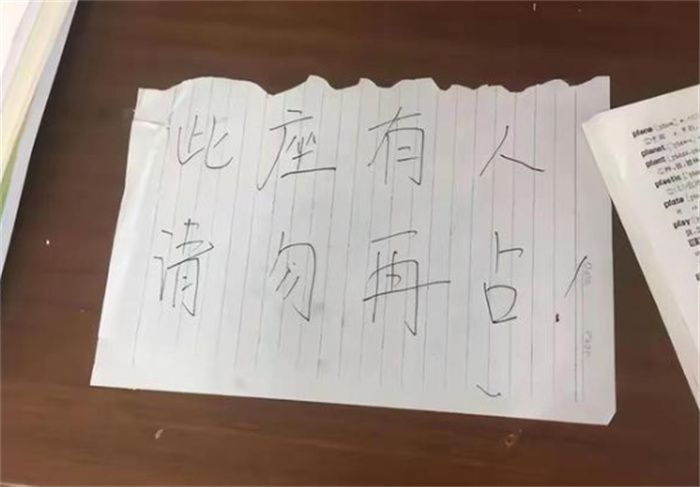 此座有人
请勿再占！
plane
planet
plant
plastic
plate
play